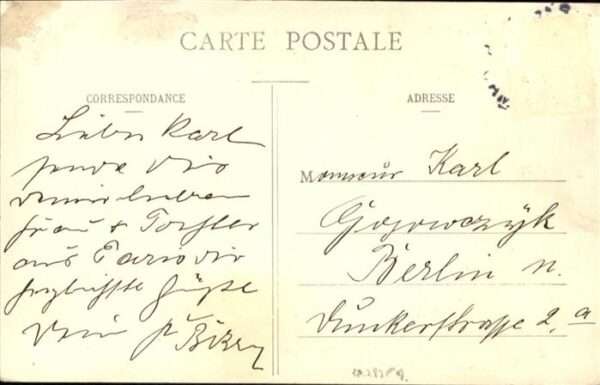 CARTE POSTALE
CORRESPONDANCE
Lieber Karl
sende Dir
Deiner lieben
Frau & Tochter
aus Paris die
herzlichste Grüße
Dein
ADRESSE
Monsieur Karl
Gogowczyk
Berlin N.
Dunkerstrasse 2.a